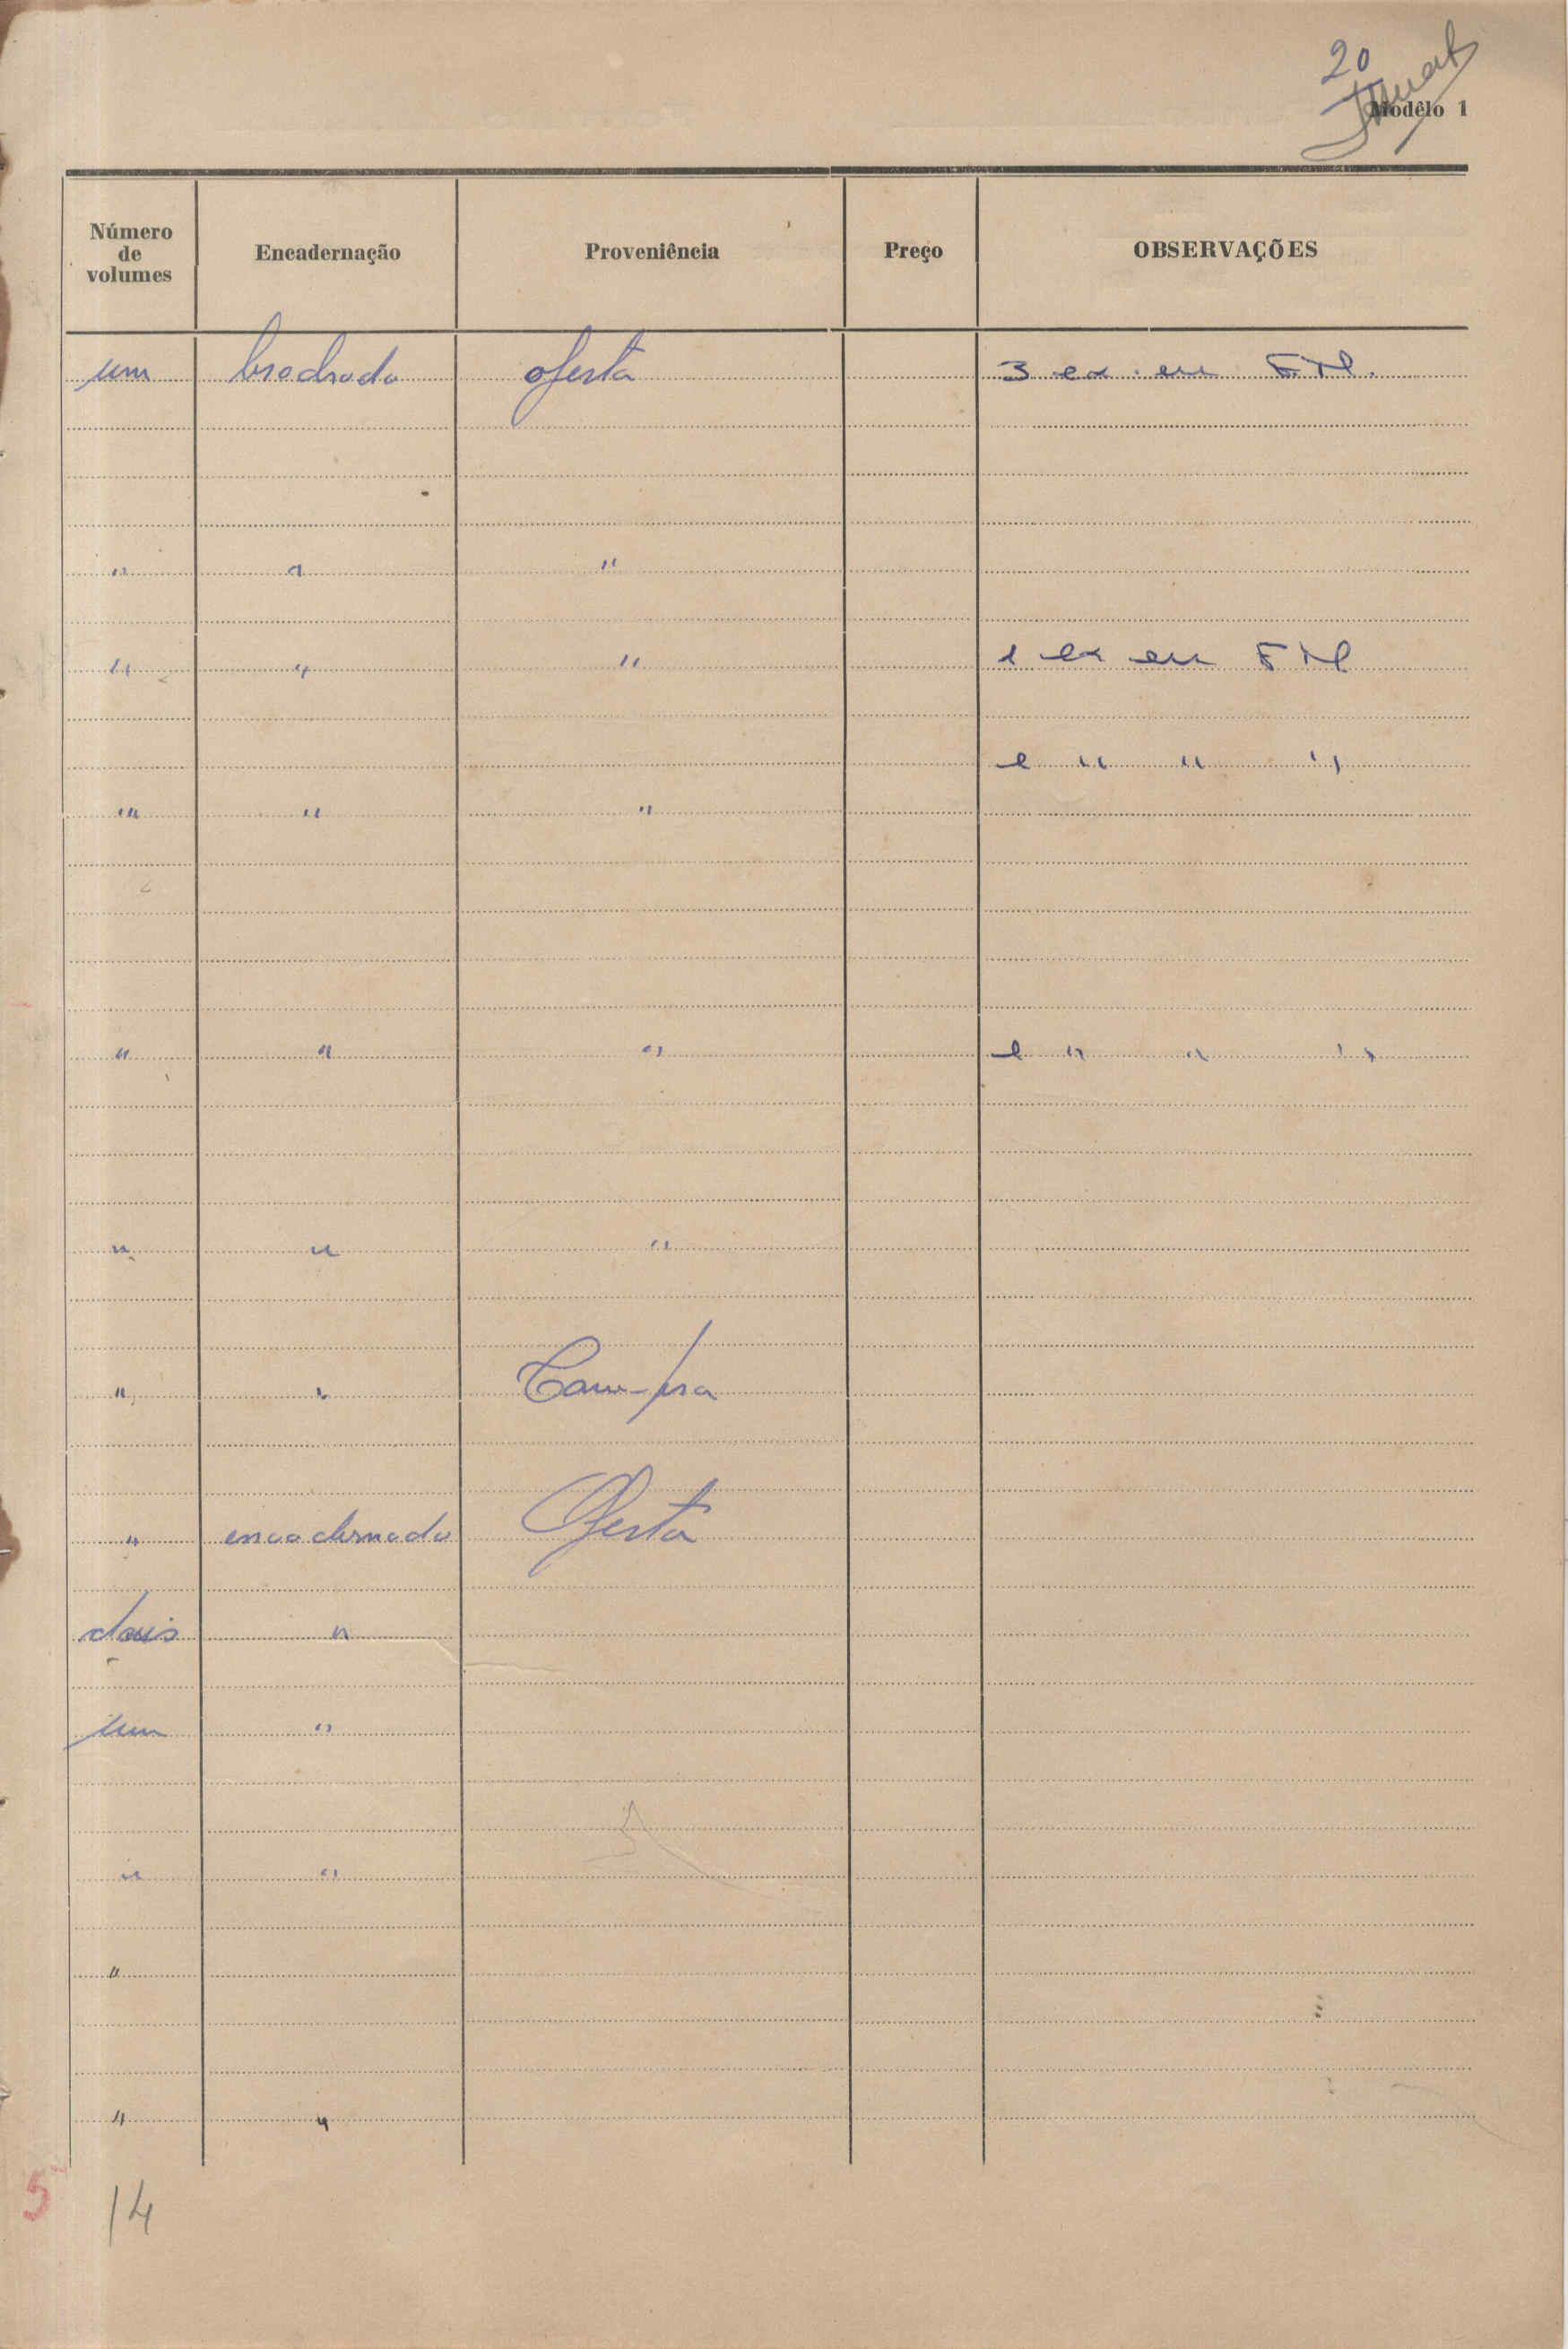 20
Modêlo 1
Número de volumes Encadernação Proveniência Preço OBSERVAÇÕES
um brochado oferta 3 ex. em F.N.
" " "
" " " 1 ex em F N
e " " "
" " "
" " " e " " "
" " "
" " Compra
" encadernado Oferta
dois "
um "
" "
"
" "
5
14